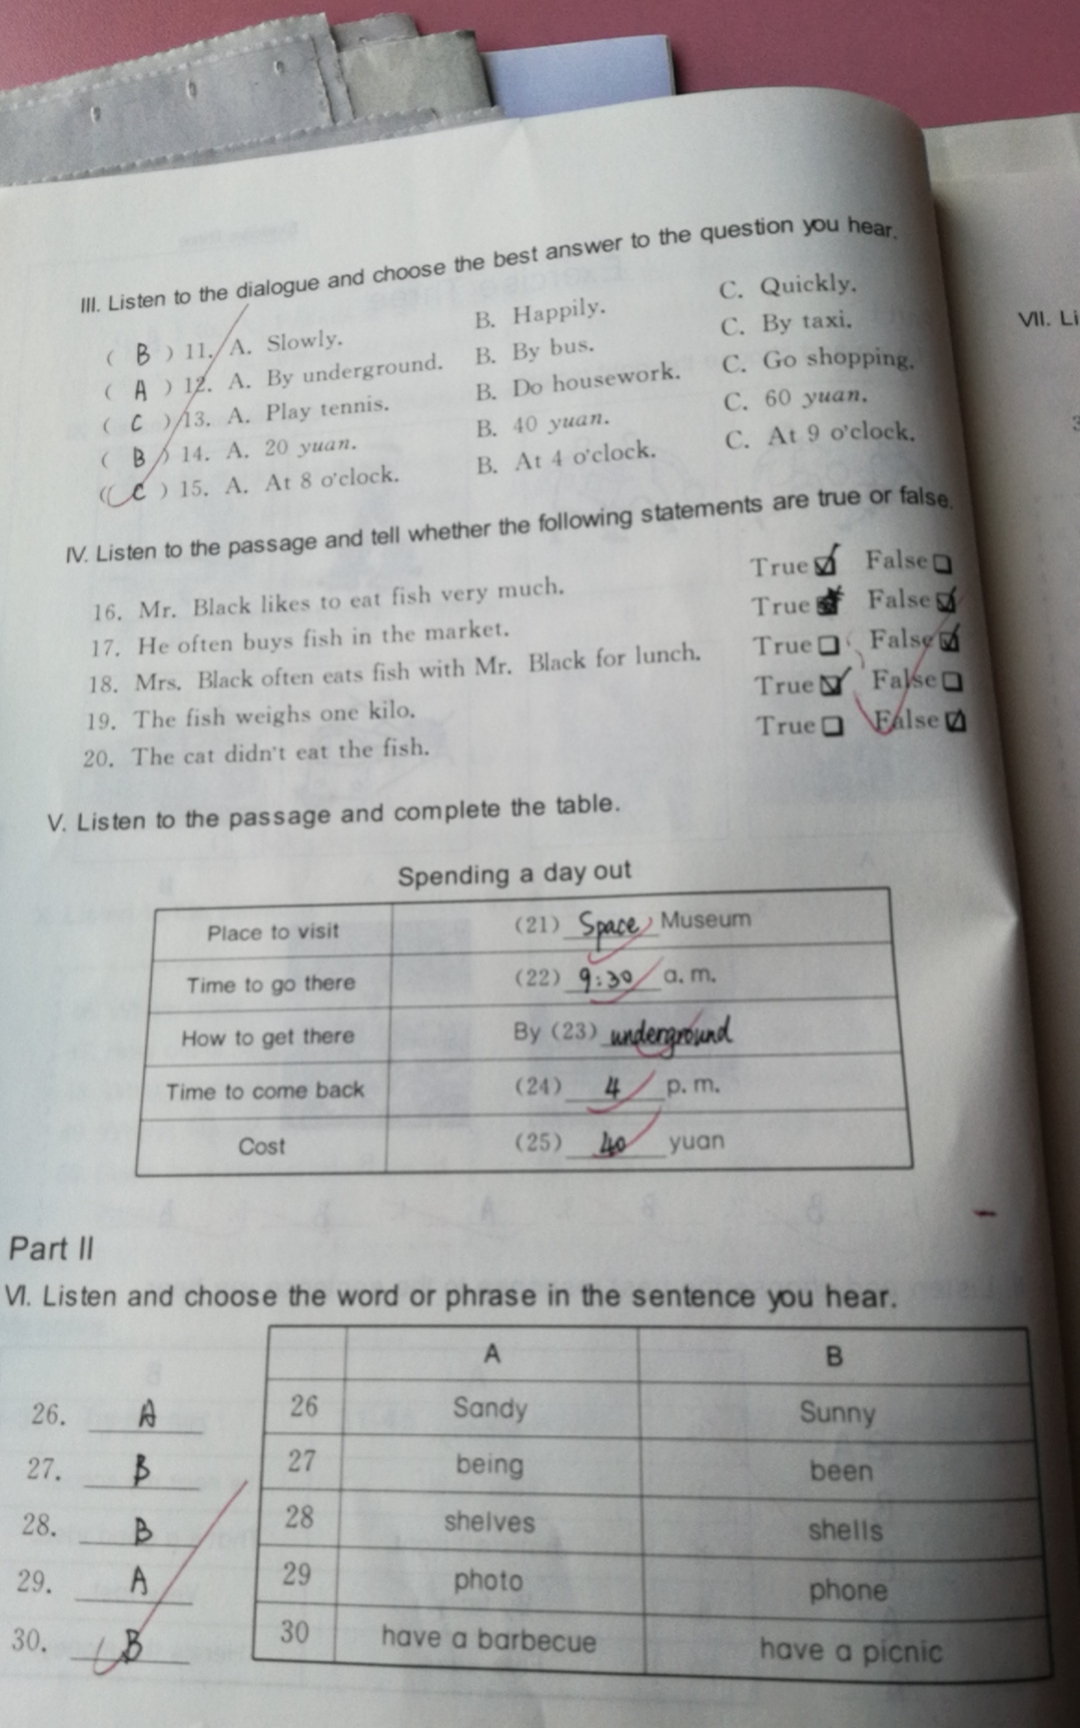 III. Listen to the dialogue and choose the best answer to the question you hear.
( B ) 11. A. Slowly. B. Happily. C. Quickly.
( A ) 12. A. By underground. B. By bus. C. By taxi.
( C ) 13. A. Play tennis. B. Do housework. C. Go shopping.
( B ) 14. A. 20 yuan. B. 40 yuan. C. 60 yuan.
( C ) 15. A. At 8 o'clock. B. At 4 o'clock. C. At 9 o'clock.
IV. Listen to the passage and tell whether the following statements are true or false.
16. Mr. Black likes to eat fish very much. True ☑ False ☐
17. He often buys fish in the market. True ■ False ☑
18. Mrs. Black often eats fish with Mr. Black for lunch. True ☐ False ☑
19. The fish weighs one kilo. True ☑ False ☐
20. The cat didn't eat the fish. True ☐ False ☑
V. Listen to the passage and complete the table.
Spending a day out
Place to visit (21) Space Museum
Time to go there (22) 9:30 a.m.
How to get there By (23) underground
Time to come back (24) 4 p.m.
Cost (25) 40 yuan
Part II
VI. Listen and choose the word or phrase in the sentence you hear.
A B
26. A 26 Sandy Sunny
27. B 27 being been
28. B 28 shelves shells
29. A 29 photo phone
30. B 30 have a barbecue have a picnic
VII. Li